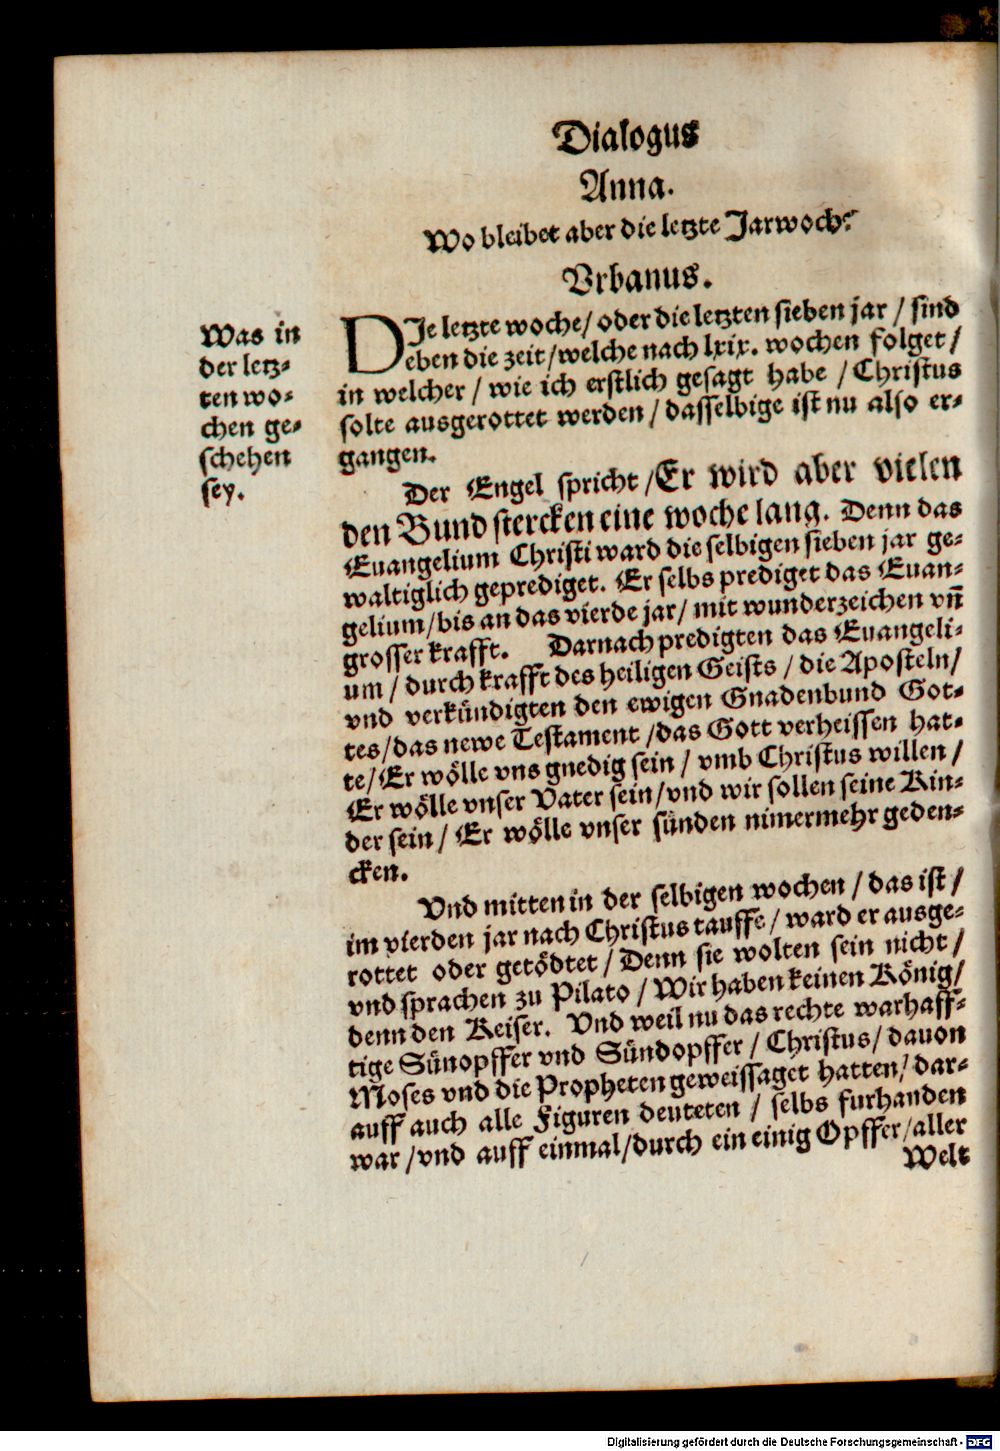 Dialogus
Anna.
Wo bleibet aber die letzte Jarwoch?
Vrbanus.
Was in
der letz-
ten wo-
chen ge-
schehen
sey.
DIe letzte woche/ oder die letzten sieben jar / sind
eben die zeit/welche nach lxix. wochen folget/
in welcher / wie ich erstlich gesagt habe / Christus
solte ausgerottet werden / dasselbige ist nu also er-
gangen.
Der Engel spricht /Er wird aber vielen
den Bund stercken eine woche lang. Denn das
Euangelium Christi ward die selbigen sieben jar ge-
waltiglich geprediget. Er selbs prediget das Euan-
gelium/bis an das vierde jar/ mit wunderzeichen vn̄
grosser krafft. Darnach predigten das Euangeli-
um / durch krafft des heiligen Geists / die Aposteln/
vnd verkündigten den ewigen Gnadenbund Got-
tes/das newe Testament /das Gott verheissen hat-
te/Er wölle vns gnedig sein / vmb Christus willen /
Er wölle vnser Vater sein/vnd wir sollen seine Kin-
der sein / Er wölle vnser sünden nimermehr geden-
cken.
Vnd mitten in der selbigen wochen / das ist /
im vierden jar nach Christus tauffe/ ward er ausge-
rottet oder getödtet / Denn sie wolten sein nicht /
vnd sprachen zu Pilato / Wir haben keinen König/
denn den Keiser. Vnd weil nu das rechte warhaff-
tige Sünopffer vnd Sündopffer / Christus/ dauon
Moses vnd die Propheten geweissaget hatten/ dar-
auff auch alle Figuren deuteten / selbs furhanden
war /vnd auff einmal/durch ein einig Opffer/aller
Welt
Digitalisierung gefördert durch die Deutsche Forschungsgemeinschaft - DFG